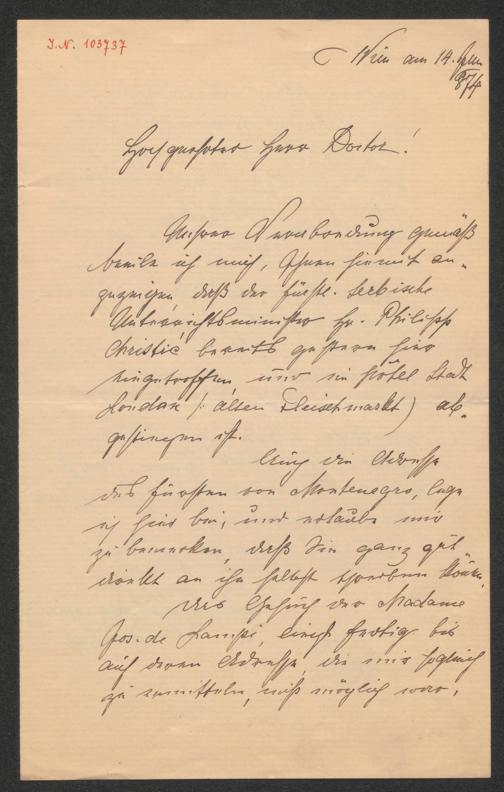 J.N. 103737
Wien am 14.
874
Hochgeehrter Herr Doctor!
Unserer Verabredung gemäß
beeile ich mich, Ihnen hiemit an-
zuzeigen, daß der fürstl. serbische
Unterrichtsminister Hr. Philipp
Christić bereits gestern hier
eingetroffen, und im Hôtel Stadt
London (: alten Fleischmarkt) ab-
gestiegen ist.
Auch die Adresse
des Fürsten von Montenegro, lege
ich hier bei, und erlaube mir
zu bemerken, daß Sie ganz gut
direkt an ihn selbst schreiben können.
Das Gesuch der Madame
Jos. de Lampi, liegt fertig bis
auf deren Adresse, die mir sogleich
zu ermitteln, nicht möglich war.